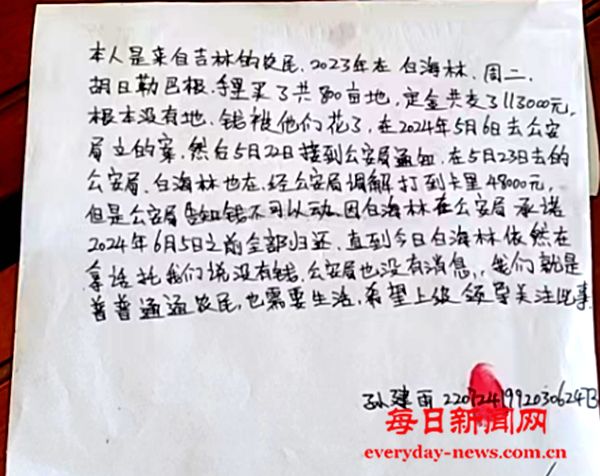 本人是来自吉林的农民，2023年在 白海林，周二，
胡日勒巴根，手里买了共800亩地，定金共支了113000元，
根本没有地，钱被他们花了，在2024年5月6日去公安
局立的案，然后5月22日接到公安局通知，在5月23日去的
公安局，白海林也在，经公安局调解打到卡里48000元，
但是公安局告知钱不可以动，因白海林在公安局承诺
2024年6月5日之前全部归还，直到今日白海林依然在
拿话托我们说没有钱，公安局也没有消息，我们就是
普普通通农民，也需要生活，希望上级领导关注此事
孙建雨
每日新闻网
everyday-news.com.cn